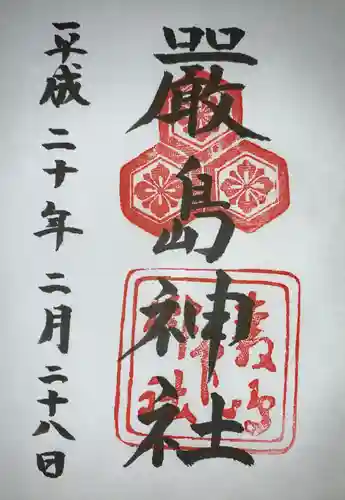 嚴島神社
平成二十年二月二十八日
嚴島
神社